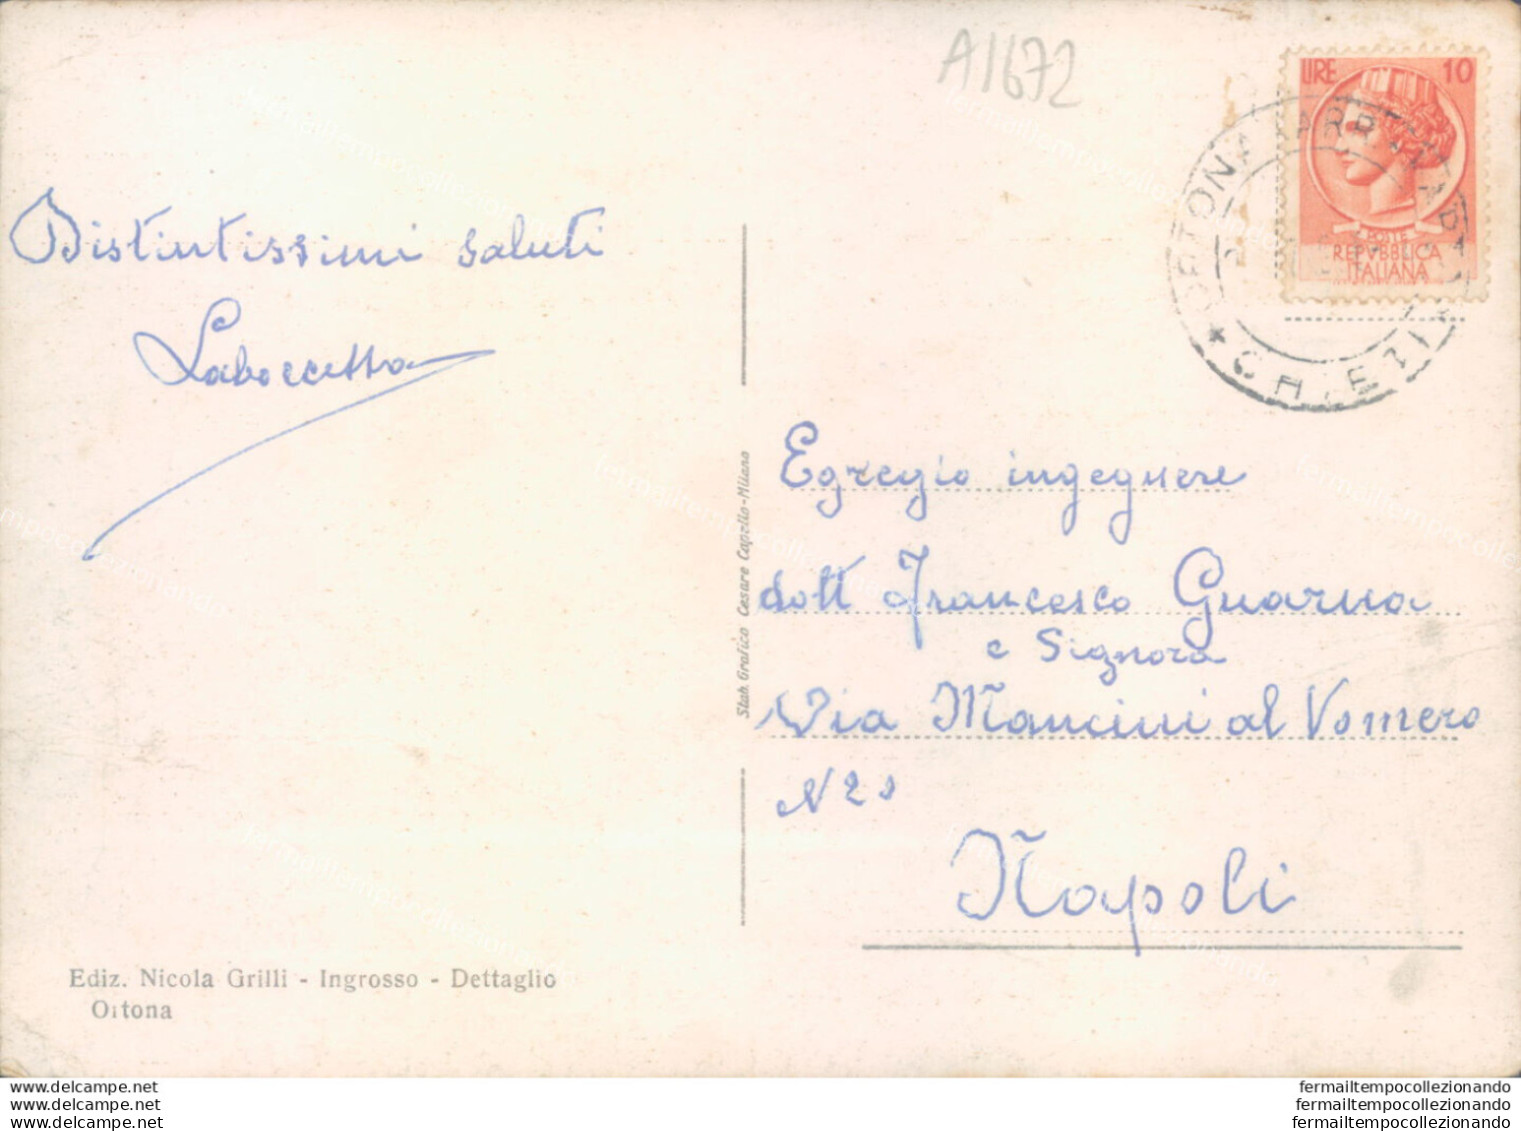 A1672
LIRE 10
POSTE
REPVBBLICA
ITALIANA
CHIETI
Distintissimi saluti
Laboccetta
Egregio ingegnere
dott Francesco Guarna
e Signora
Via Mancini al Vomero
N 21
Napoli
Stab. Grafico Cesare Capello-Milano
Ediz. Nicola Grilli - Ingrosso - Dettaglio
Ortona
www.delcampe.net
www.delcampe.net
www.delcampe.net
fermailtempocollezionando
fermailtempocollezionando
fermailtempocollezionando